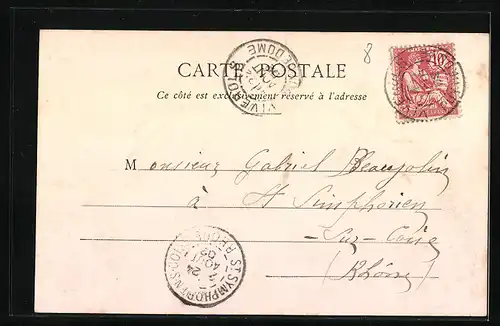 8
CARTE POSTALE
Ce côté est exclusivement réservé à l'adresse
Monsieur Gabriel Beaujolin
à St Simphorien
-Sur-Coise
(Rhône)
VIVEROLS
PUY-DE-DOME
ST SYMPHORIEN-S-COISE
RHONE